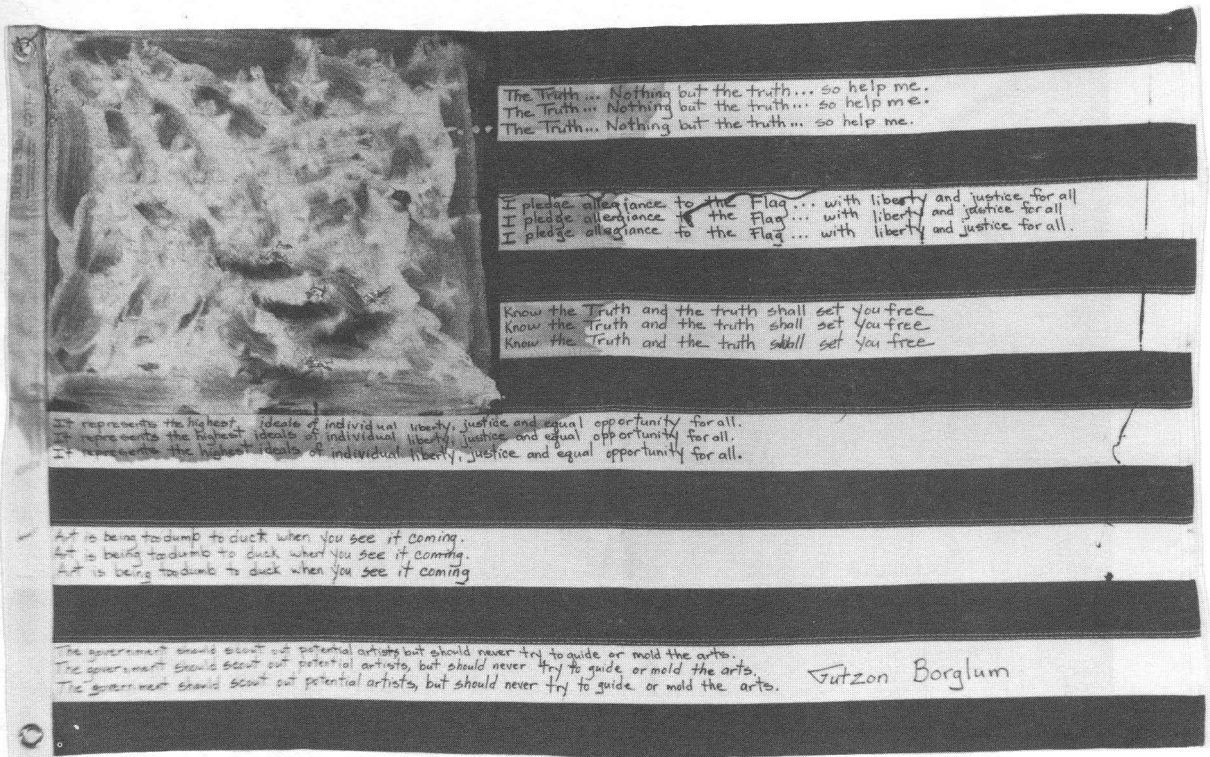 The Truth... Nothing but the truth... so help me.
The Truth... Nothing but the truth... so help me.
The Truth... Nothing but the truth... so help me.
I pledge allegiance to the Flag... with liberty and justice for all
I pledge allegiance to the Flag... with liberty and justice for all
I pledge allegiance to the Flag... with liberty and justice for all.
Know the Truth and the truth shall set you free
Know the Truth and the truth shall set you free
Know the Truth and the truth shall set you free
It represents the highest ideals of individual liberty, justice and equal opportunity for all.
It represents the highest ideals of individual liberty, justice and equal opportunity for all.
It represents the highest ideals of individual liberty, justice and equal opportunity for all.
Art is being too dumb to duck when you see it coming.
Art is being too dumb to duck when you see it coming.
Art is being too dumb to duck when you see it coming
The government should scout out potential artists, but should never try to guide or mold the arts.
The government should scout out potential artists, but should never try to guide or mold the arts.
The government should scout out potential artists, but should never try to guide or mold the arts.
Gutzon Borglum